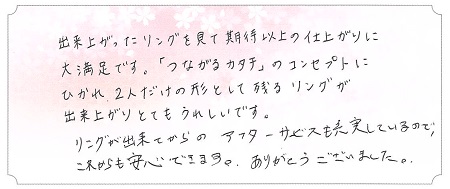 出来上がったリングを見て期待以上の仕上がりに
大満足です。「つながるカタチ」のコンセプトに
ひかれ、2人だけの形として残るリングが
出来上がりとてもうれしいです。
リングが出来てからの アフターサービスも充実しているので、
これからも安心できます。ありがとうございました。